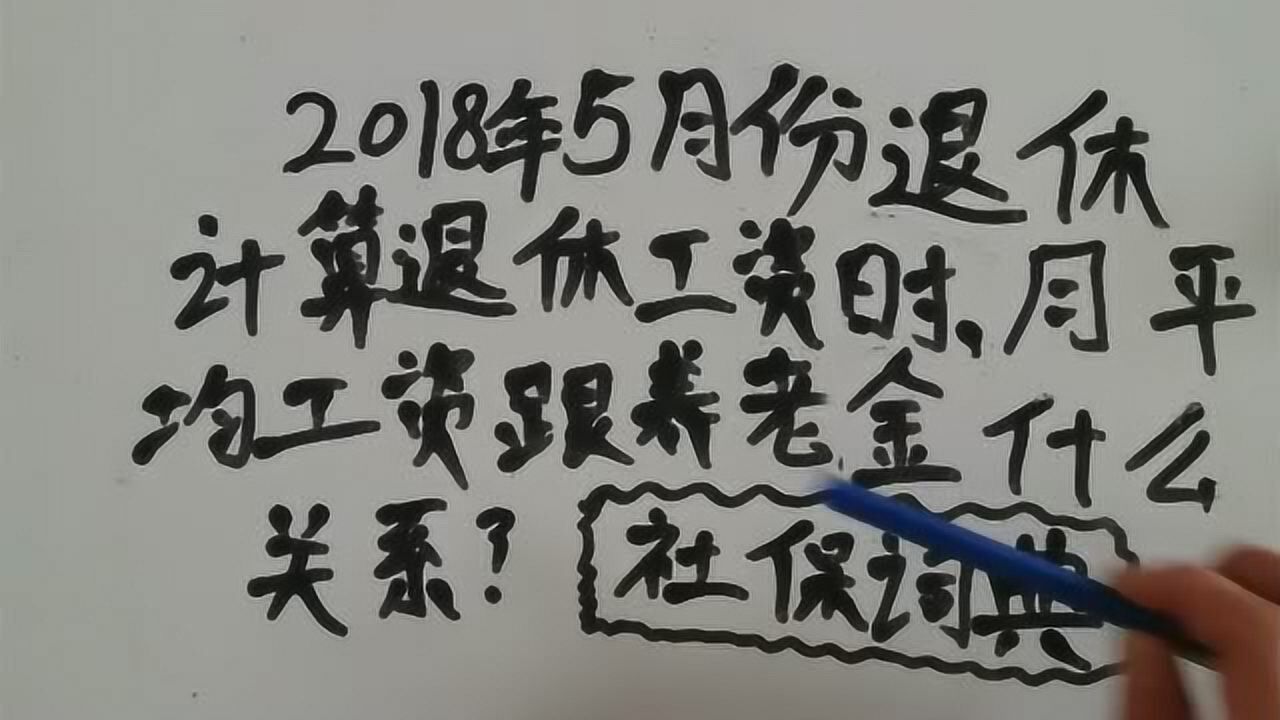 2018年5月份退休
计算退休工资时,月平
均工资跟养老金什么
关系?
社保词典